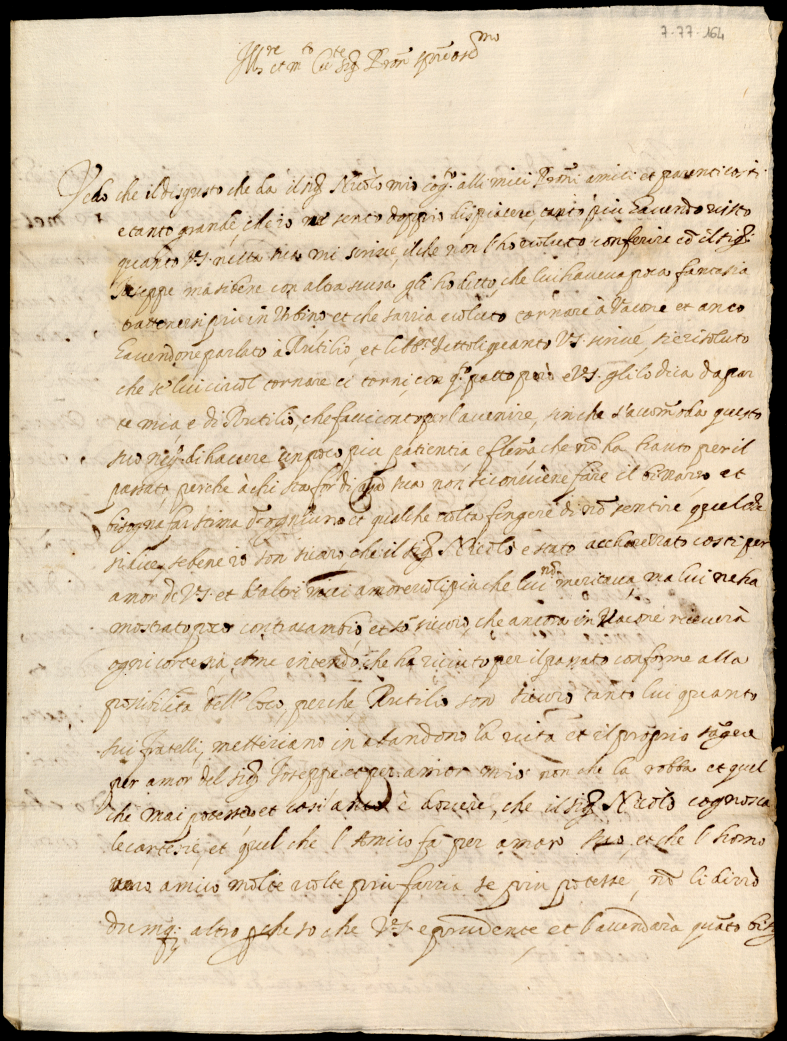 7-77-164
Ill.re et m.to Ecc.te Sig.r Pron
Vedo che il disgusto che dà il Sig.r Nicolò mio cog.to alli miei Proni amici et parenti costi
e tanto grande, che io ne sento doppio dispiacere, tanto più havendo visto
quanto V.S. nella sua mi scrive, il che non l'ho voluto conferire co il Sig.r
Joseppe ma si bene con altra scusa gli ho ditto, che lui haveva poca fantasia
trattenersi più in Urbino et che sarria voluto tornare à Vacone et anco
havendone parlato à Rutilio et dittoli quanto V.S. scrive, si è risoluto
che se lui vuol tornare ci torni, con q.o patto però e V.S. gli lo dica da par
te mia, e di Rutilio, che facci conto per l'avenire, sin che s'accomoda questo
suo neg.o di havere un poco più patientia e flema che nō ha hauto per il
passato perche à chi sta for di sua non si conviene fare il et
bisogna far stima d'ogniuno et qualche volta fingere di nō sentire quel che
si dice, se bene io son sicuro, che il Sig.r Nicolo è stato accharezzato costi per
amor di V.S. et d'altri miei amorevoli più che lui nō meritava, ma lui ne ha
mostrato poco contracambio, et sō sicuro, che ancora in Vacone riceverà
ogni cortesia, come intendo che ha riciuto per il passato conforme alla
possibilità dell loco, perche Rutilio son sicuro tanto lui quanto
sui fratelli, metteriano in abandono la vita et il proprio sangue
per amor del Sig.r Joseppe et per amor mio non che la robba et quel
che mai potesse et così anco è dovere, che il Sig.r Nicolò cognosca
le cortesie, et quel che l'Amico fa per amor suo, et che l'homo
vero amico molte volte più farria se più potesse, nō li dirrò
dumq. altro pche so che V.S. e prudente et l'avendarà quāto bis